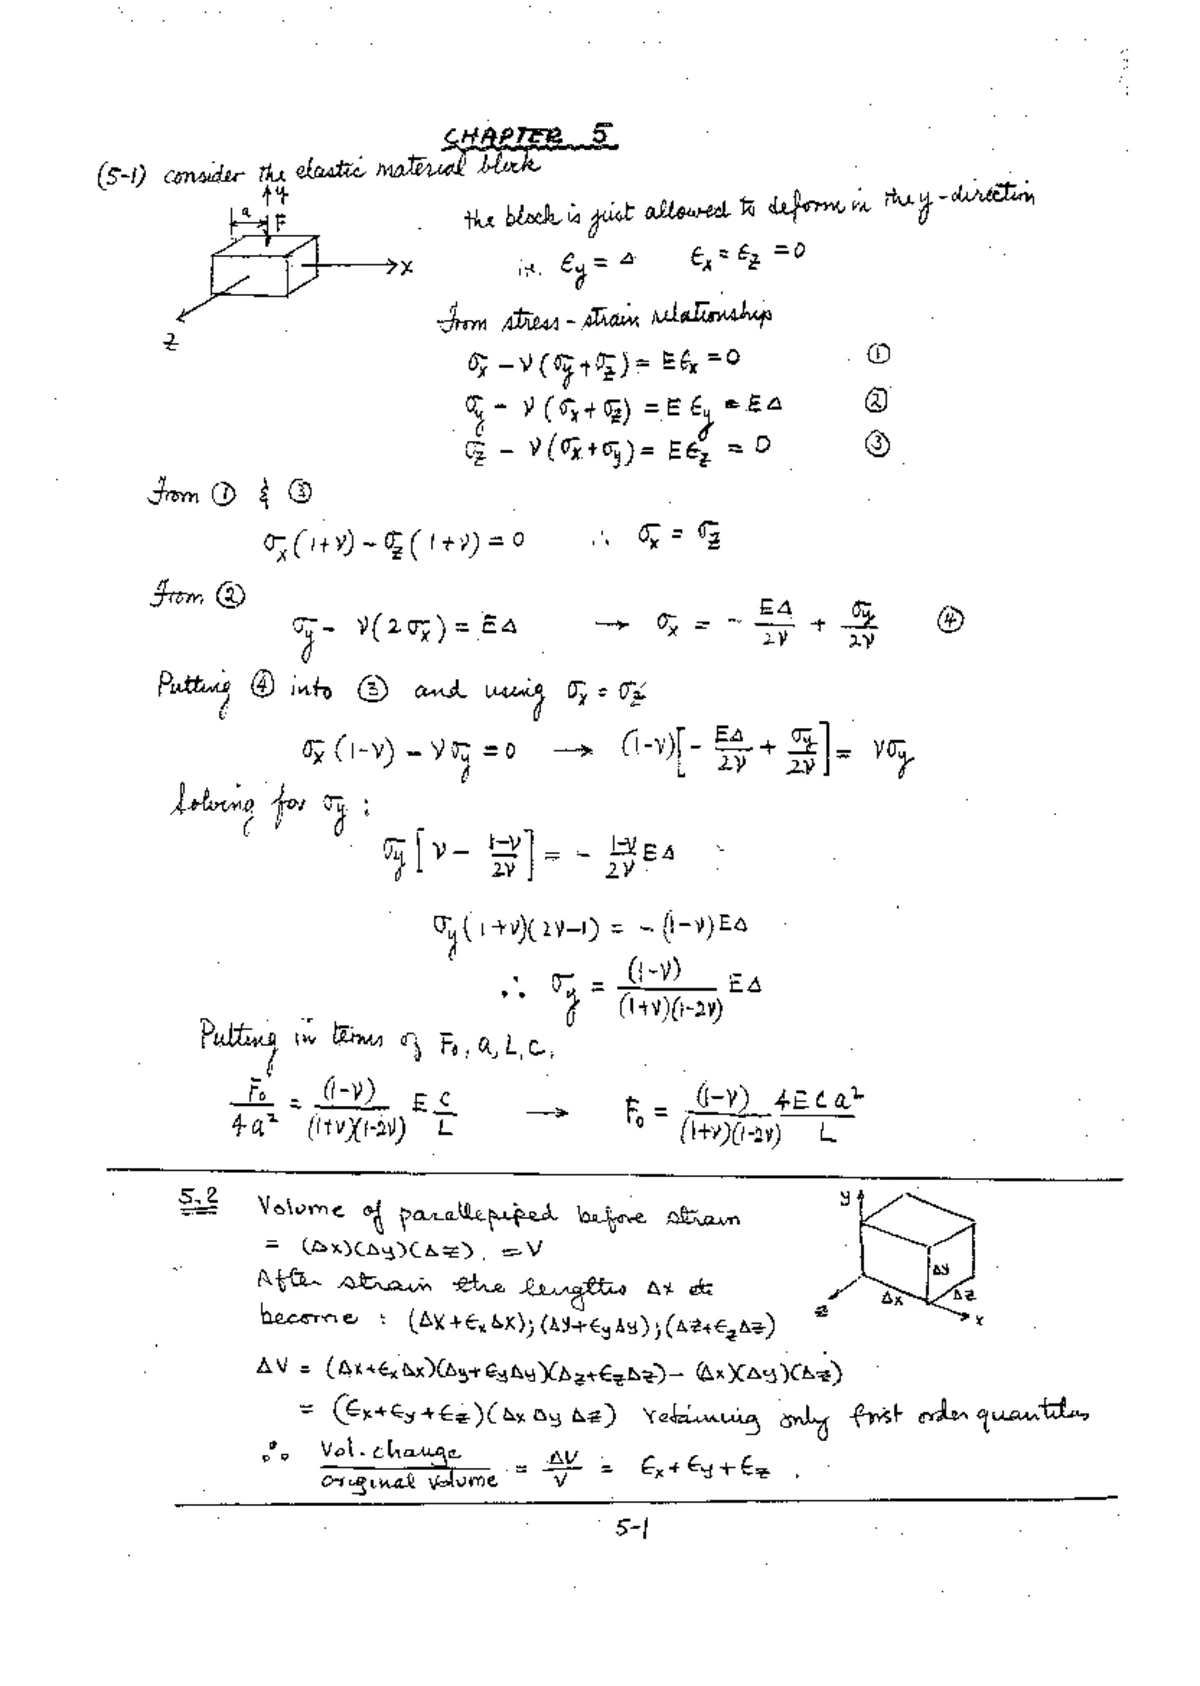 CHAPTER 5
(5-1) consider the elastic material block
y
a
F
x
z
the block is just allowed to deform in the y-direction
i.e. ϵy = Δ ϵx = ϵz = 0
From stress-strain relationship
σx − ν(σy + σz) = Eϵx = 0 ①
σy − ν(σx + σz) = Eϵy = EΔ ②
σz − ν(σx + σy) = Eϵz = 0 ③
From ① & ③
σx(1+ν) − σz(1+ν) = 0 ∴ σx = σz
From ②
σy − ν(2σx) = EΔ → σx = − EΔ/2ν + σy/2ν ④
Putting ④ into ③ and using σx = σz
σx(1−ν) − νσy = 0 → (1−ν)[− EΔ/2ν + σy/2ν] = νσy
Solving for σy :
σy[ν − (1−ν)/2ν] = − (1−ν)/2ν EΔ
σy(1+ν)(2ν−1) = − (1−ν)EΔ
∴ σy = (1−ν)/(1+ν)(1−2ν) EΔ
Putting in terms of F₀, a, L, c,
F₀/4a² = (1−ν)/(1+ν)(1−2ν) E c/L → F₀ = (1−ν)/(1+ν)(1−2ν) 4Eca²/L
5.2 Volume of parallepiped before strain
= (Δx)(Δy)(Δz). = V
After strain the lengths Δx etc
become : (Δx+ϵxΔx); (Δy+ϵyΔy); (Δz+ϵzΔz)
y
Δy
Δx
Δz
z
x
ΔV = (Δx+ϵxΔx)(Δy+ϵyΔy)(Δz+ϵzΔz) − (Δx)(Δy)(Δz)
= (ϵx+ϵy+ϵz)(Δx Δy Δz) retaining only first order quantities
∴ Vol. change/original volume = ΔV/V = ϵx+ϵy+ϵz .
5-1